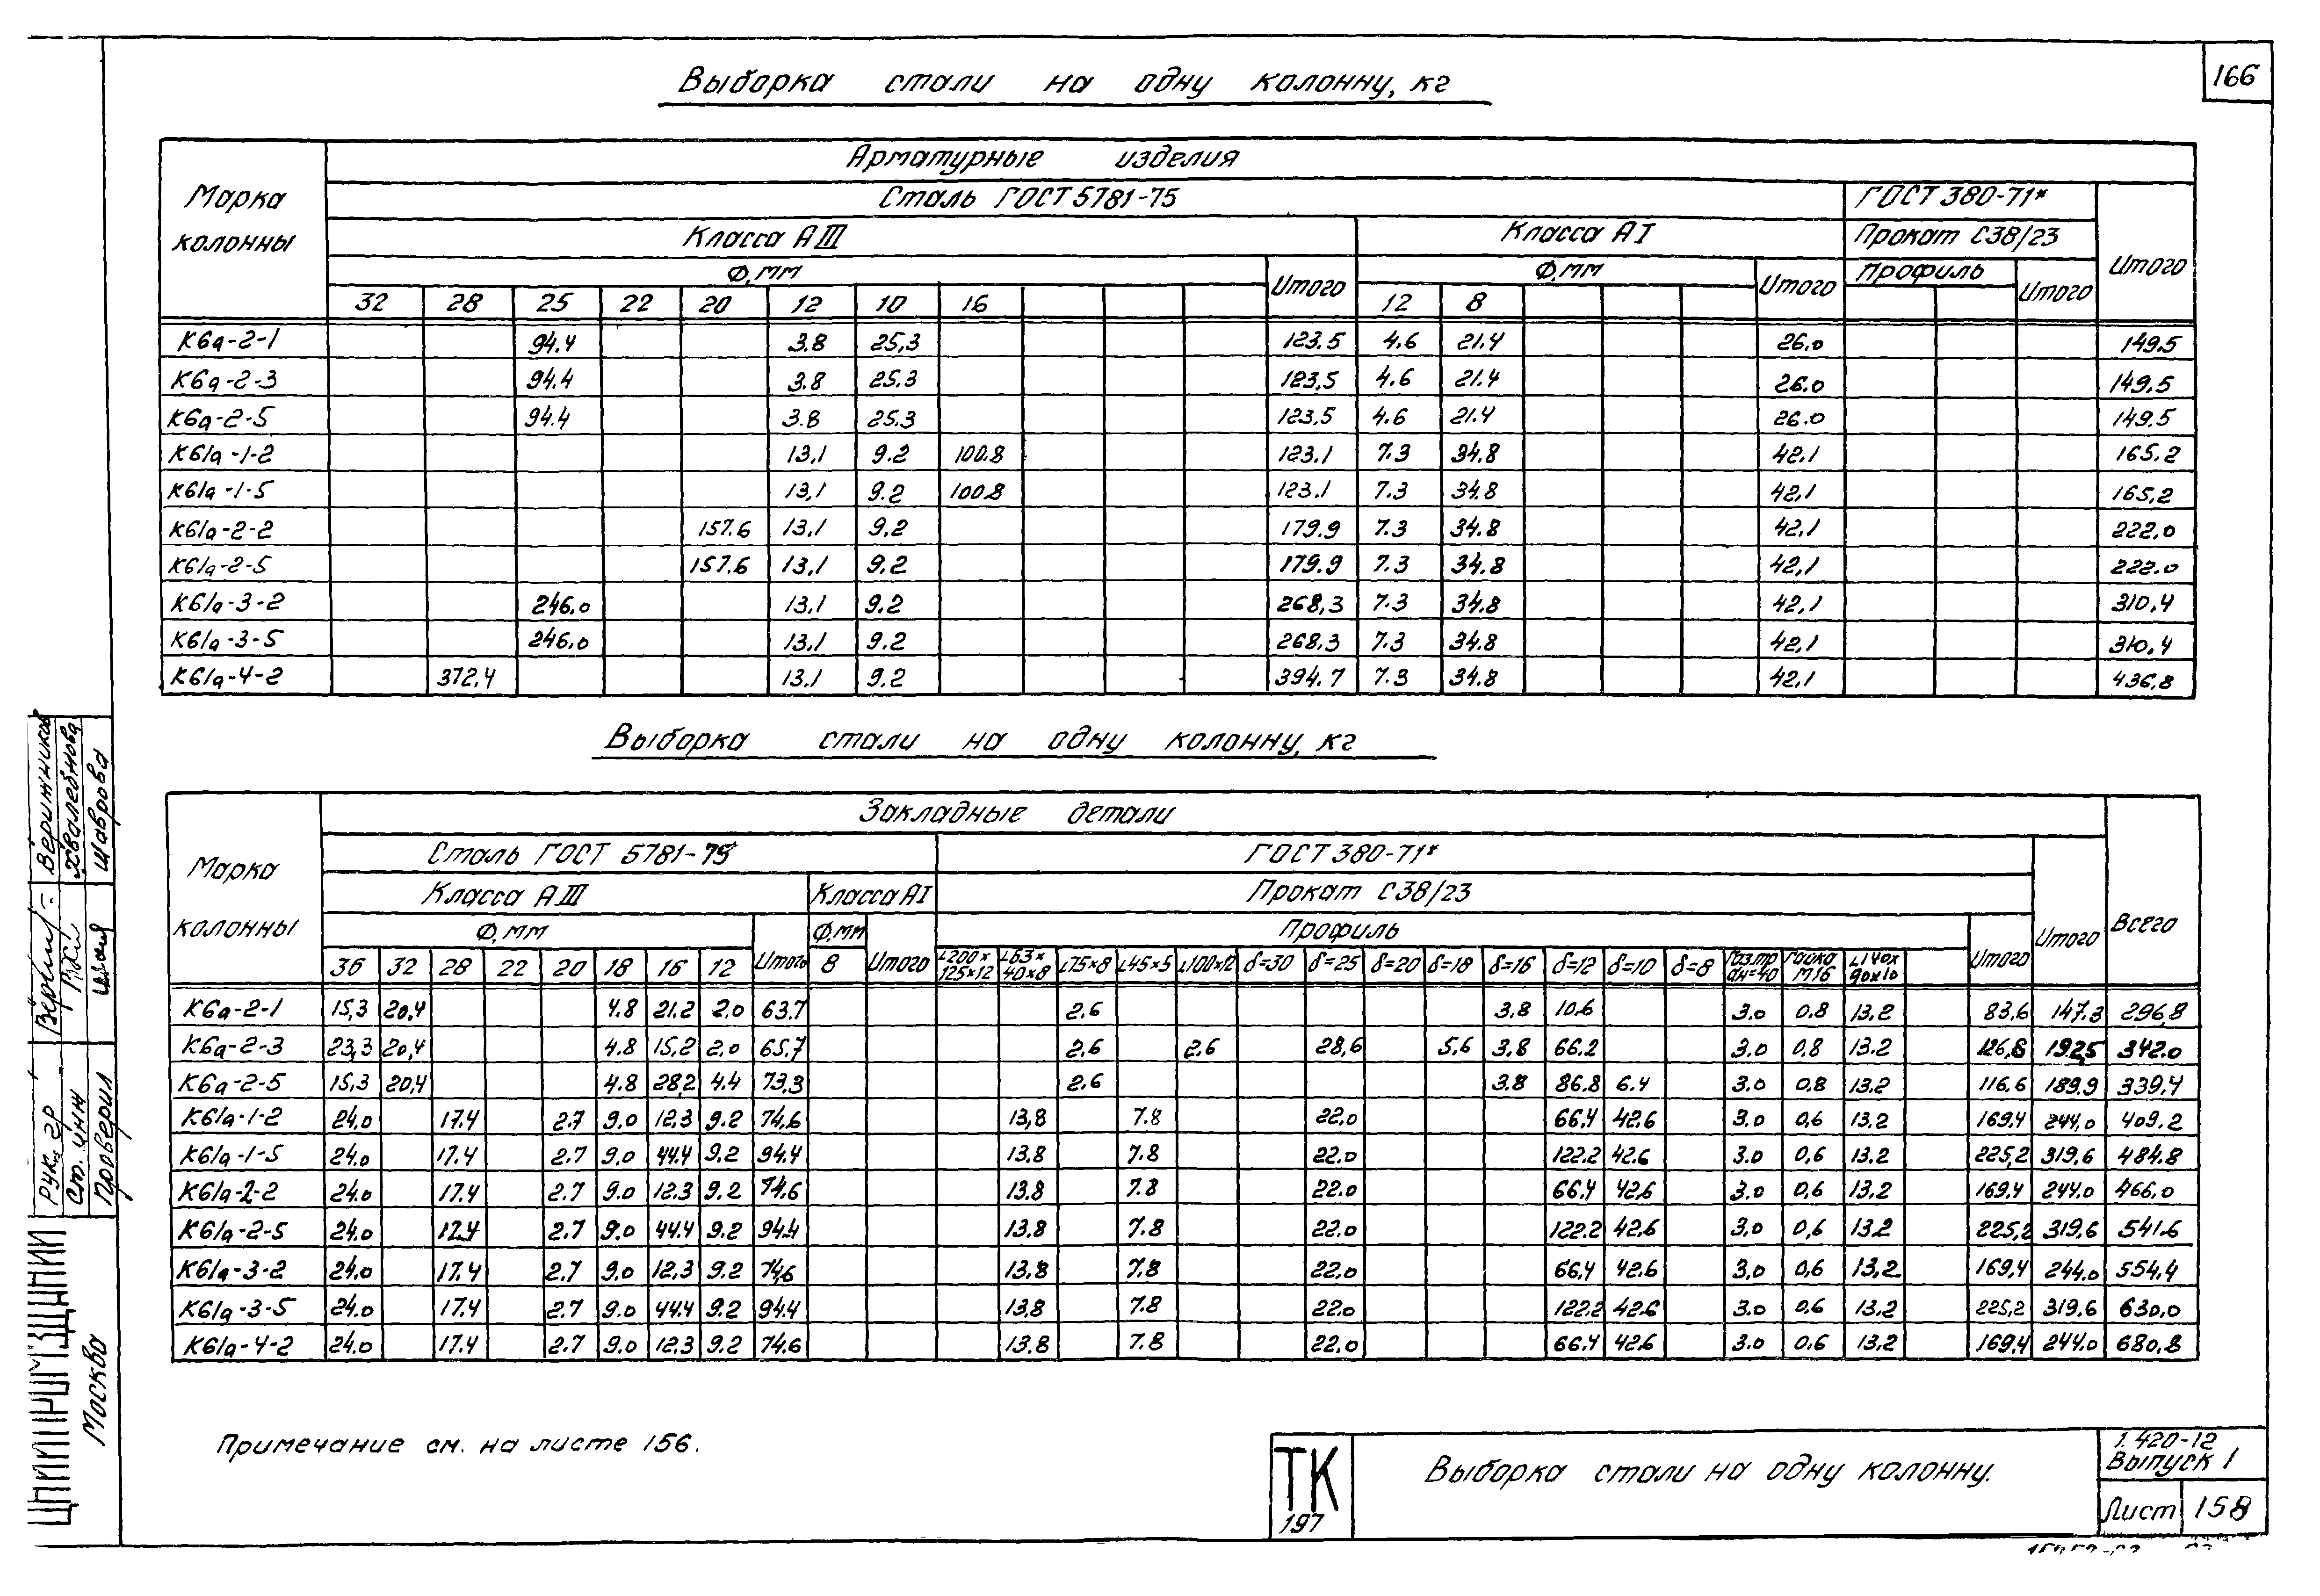 166
Выборка стали на одну колонну, кг
Марка колонны
Арматурные изделия
Сталь ГОСТ 5781-75 ГОСТ 380-71* Итого
Класса АIII Класса АI Прокат С38/23
Ф, мм Итого Ф, мм Итого Профиль Итого
32 28 25 22 20 12 10 16 12 8
К6а-2-1 94.4 3.8 25,3 123.5 4.6 21.4 26.0 149.5
К6а-2-3 94.4 3.8 25.3 123,5 4.6 21.4 26.0 149.5
К6а-2-5 94.4 3.8 25.3 123,5 4.6 21.4 26.0 149.5
К61а-1-2 13,1 9.2 100.8 123.1 7.3 34.8 42.1 165.2
К61а-1-5 13,1 9.2 100.8 123.1 7.3 34.8 42,1 165,2
К61а-2-2 157.6 13.1 9.2 179.9 7.3 34.8 42.1 222,0
К61а-2-5 157.6 13,1 9,2 179.9 7.3 34.8 42,1 222.0
К61а-3-2 246.0 13,1 9.2 268,3 7.3 34.8 42,1 310,4
К61а-3-5 246,0 13.1 9.2 268.3 7.3 34.8 42,1 310,4
К61а-4-2 372,4 13.1 9.2 394.7 7.3 34.8 42.1 436,8
Выборка стали на одну колонну, кг
Марка колонны
Закладные детали Всего
Сталь ГОСТ 5781-75 ГОСТ 380-71* Итого
Класса АIII Класса АI Прокат С38/23
Ф, мм Итого Ф, мм Итого Профиль Итого
36 32 28 22 20 18 16 12 8 L200×125×12 L63×40×8 L75×8 L45×5 L100×12 δ=30 δ=25 δ=20 δ=18 δ=16 δ=12 δ=10 δ=8 Газ.тр dн=40 Гайка М16 L140×90×10
К6а-2-1 15,3 20,4 4.8 21.2 2.0 63.7 2.6 3,8 10,6 3.0 0.8 13,2 83,6 147.3 296,8
К6а-2-3 23,3 20,4 4.8 15,2 2,0 65.7 2,6 2,6 28,6 5,6 3.8 66.2 3.0 0,8 13.2 126,8 192,5 342.0
К6а-2-5 15,3 20,4 4.8 28,2 4.4 73,3 2,6 3.8 86.8 6.4 3.0 0,8 13,2 116,6 189.9 339,4
К61а-1-2 24,0 17.4 2.7 9.0 12.3 9.2 74,6 13,8 7.8 22.0 66,4 42.6 3.0 0,6 13,2 169,4 244,0 409.2
К61а-1-5 24.0 17.4 2.7 9,0 44.4 9,2 94.4 13.8 7.8 22.0 122.2 42.6 3.0 0,6 13.2 225,2 319,6 484.8
К61а-2-2 24.0 17.4 2.7 9.0 12.3 9.2 74,6 13.8 7.8 22.0 66.4 42,6 3.0 0,6 13,2 169,4 244.0 466,0
К61а-2-5 24.0 17.4 2.7 9.0 44.4 9.2 94.4 13.8 7.8 22.0 122.2 42.6 3,0 0,6 13.2 225,2 319,6 541.6
К61а-3-2 24.0 17.4 2.7 9.0 12,3 9.2 74,6 13.8 7.8 22.0 66,4 42.6 3,0 0,6 13,2 169,4 244.0 554,4
К61а-3-5 24.0 17.4 2.7 9.0 44.4 9.2 94.4 13,8 7.8 22.0 122.2 42.6 3.0 0,6 13,2 225,2 319.6 630,0
К61а-4-2 24.0 17.4 2.7 9.0 12.3 9.2 74.6 13.8 7.8 22.0 66.4 42.6 3.0 0.6 13,2 169,4 244.0 680,8
Примечание см. на листе 156.
ТК
197
Выборка стали на одну колонну.
1.420-12
Выпуск 1
Лист 158
Рук. гр Верижников
Ст. инж Хвалебнова
Проверил Шаврова
ЦНИИПРОМЗДАНИЙ
Москва